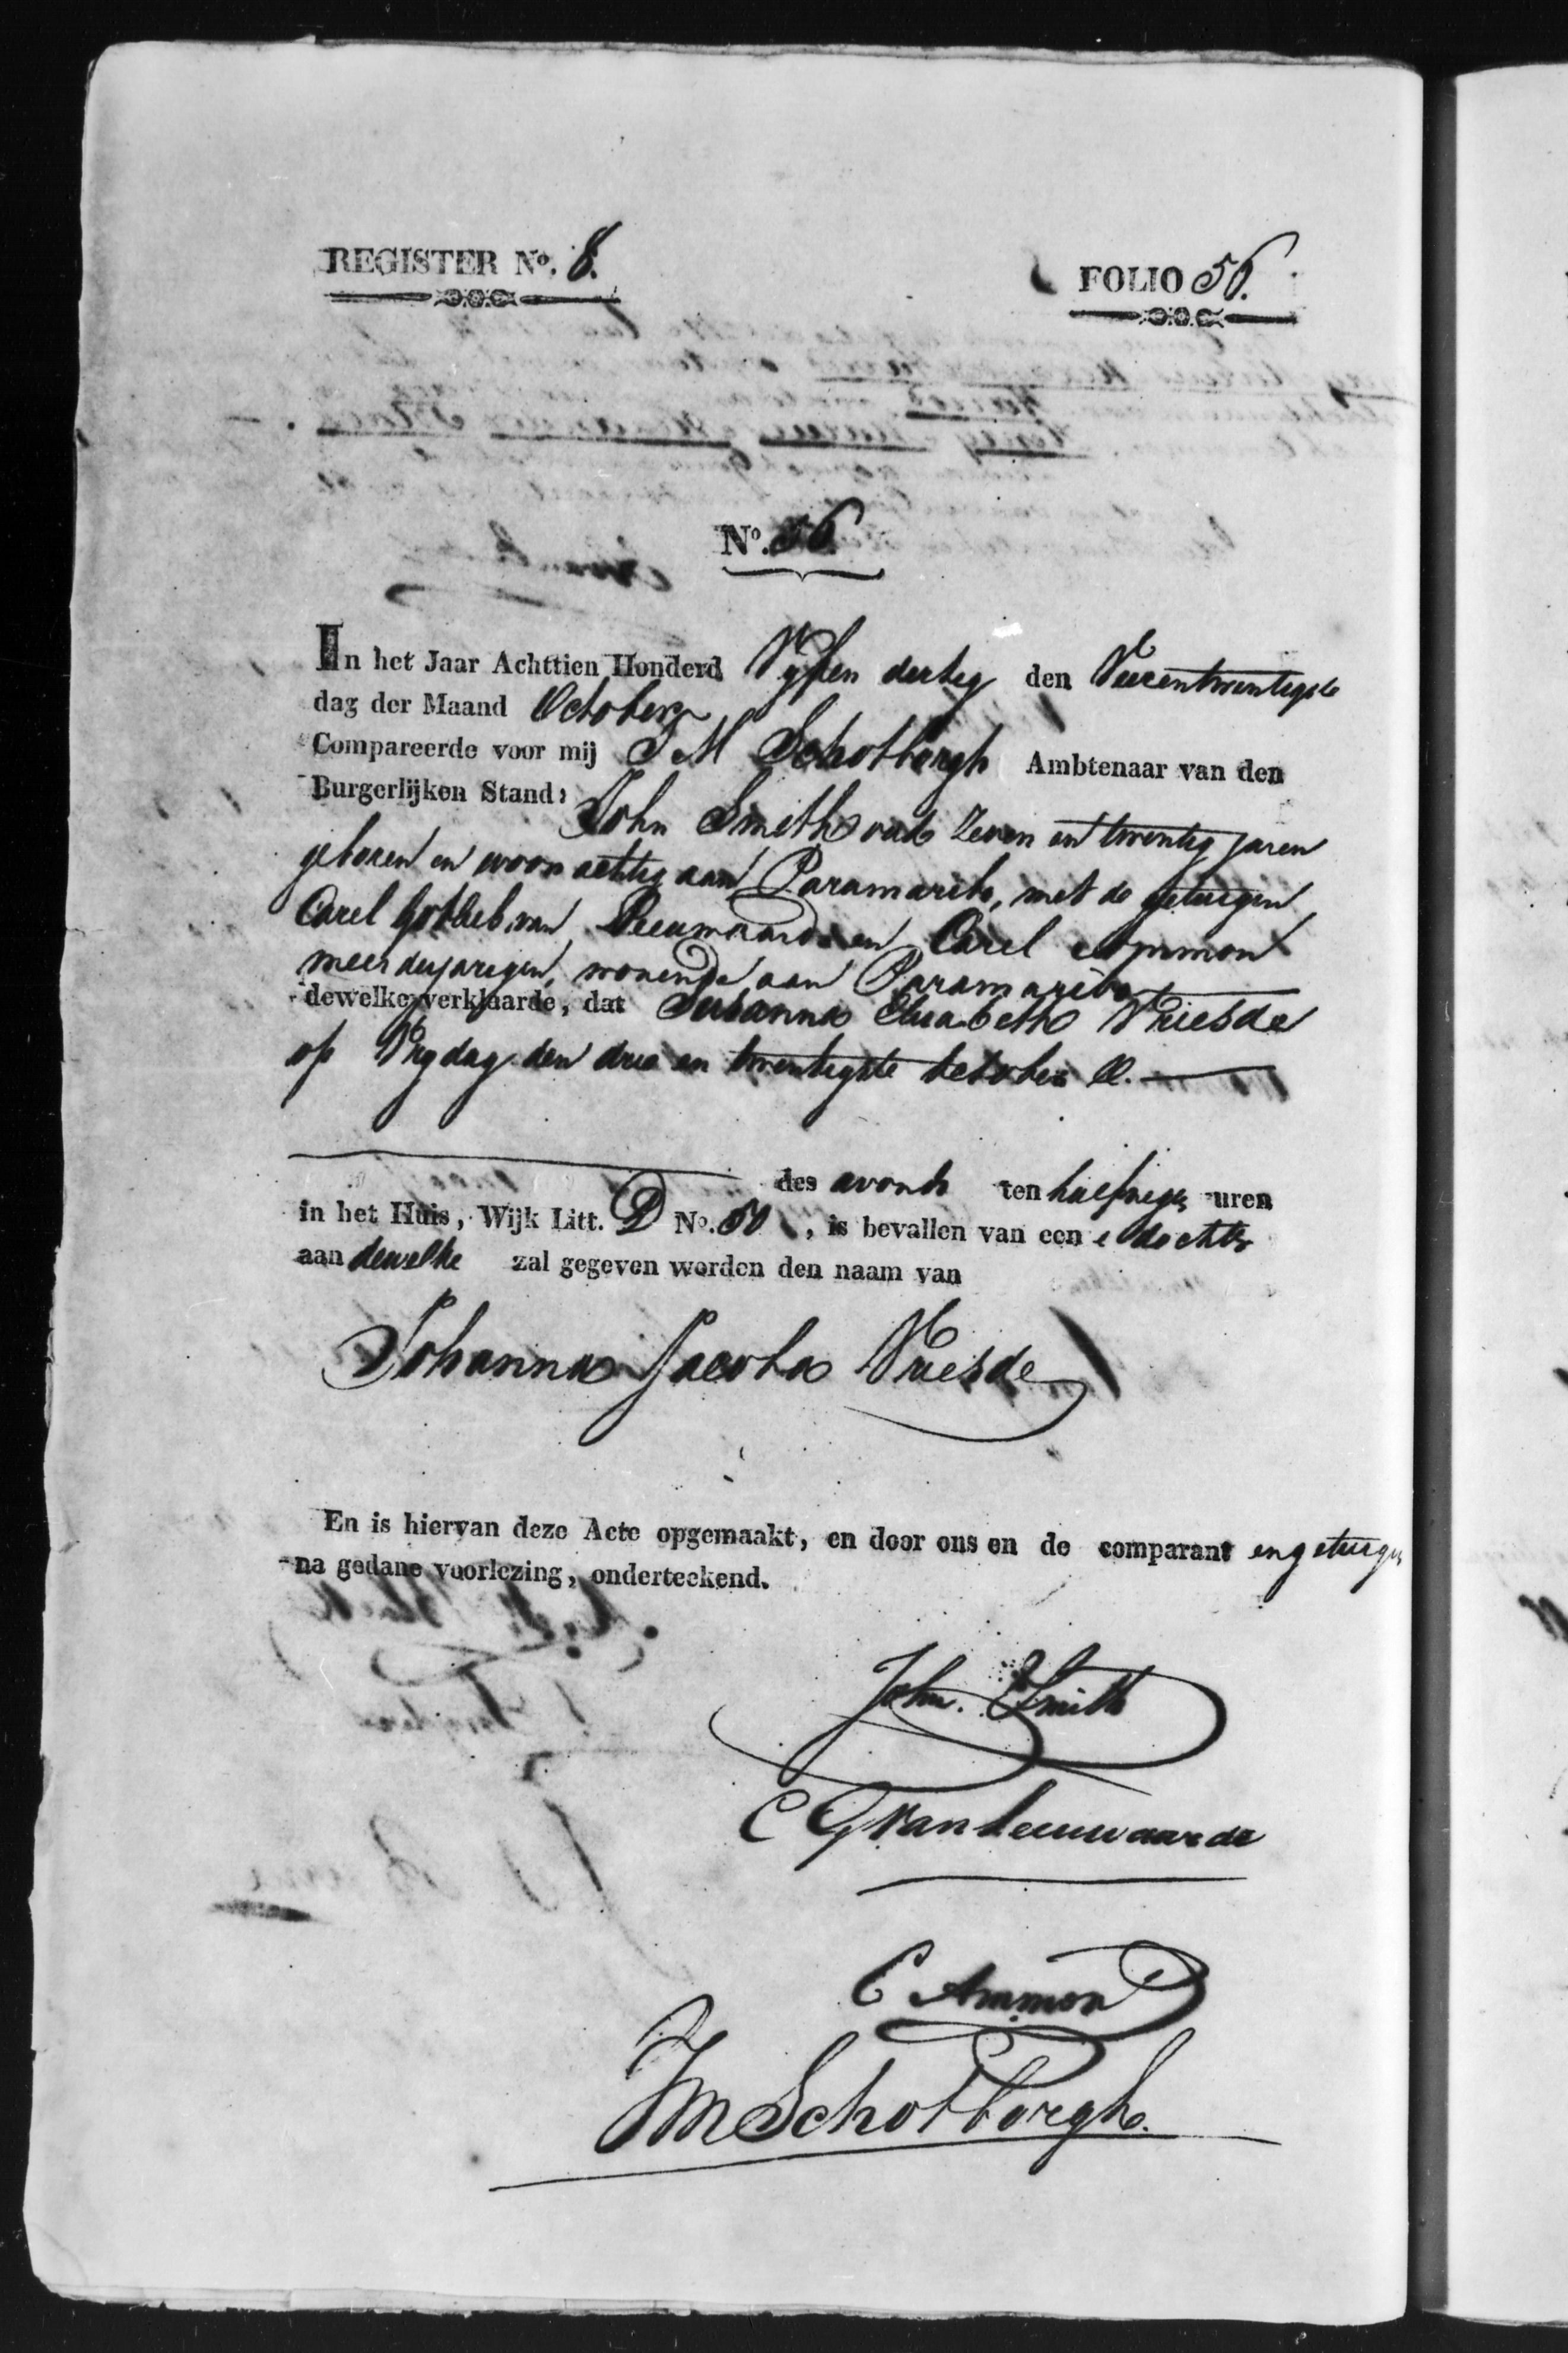 REGISTER No. 8.
FOLIO 56.
No. 56
In het Jaar Achttien Honderd Vyfen dertig den Vierentwentigste
dag der Maand October
Compareerde voor mij J M Schotborgh Ambtenaar van den
Burgerlijken Stand:
John Smith oud Zeven en twentig jaren
geboren en woonachtig aan Paramaribo, met de getuigen
Carel Gotlieb van Leeuwaarde en Carel Ammon
meerderjarigen, wonende aan Paramaribo
dewelke verklaarde, dat Susanna Elisabeth Vriesde
op Vrydag den drie en twentigste October ll.
des avonds ten half negen uren
in het Huis, Wijk Litt. D No. 50, is bevallen van een e dochter
aan dewelke zal gegeven worden den naam van
Johanna Jacoba Vriesde
En is hiervan deze Acte opgemaakt, en door ons en de comparant en getuigen
na gedane voorlezing, onderteekend.
John Smith
C G van Leeuwaarde
C Ammon
JM Schotborgh.